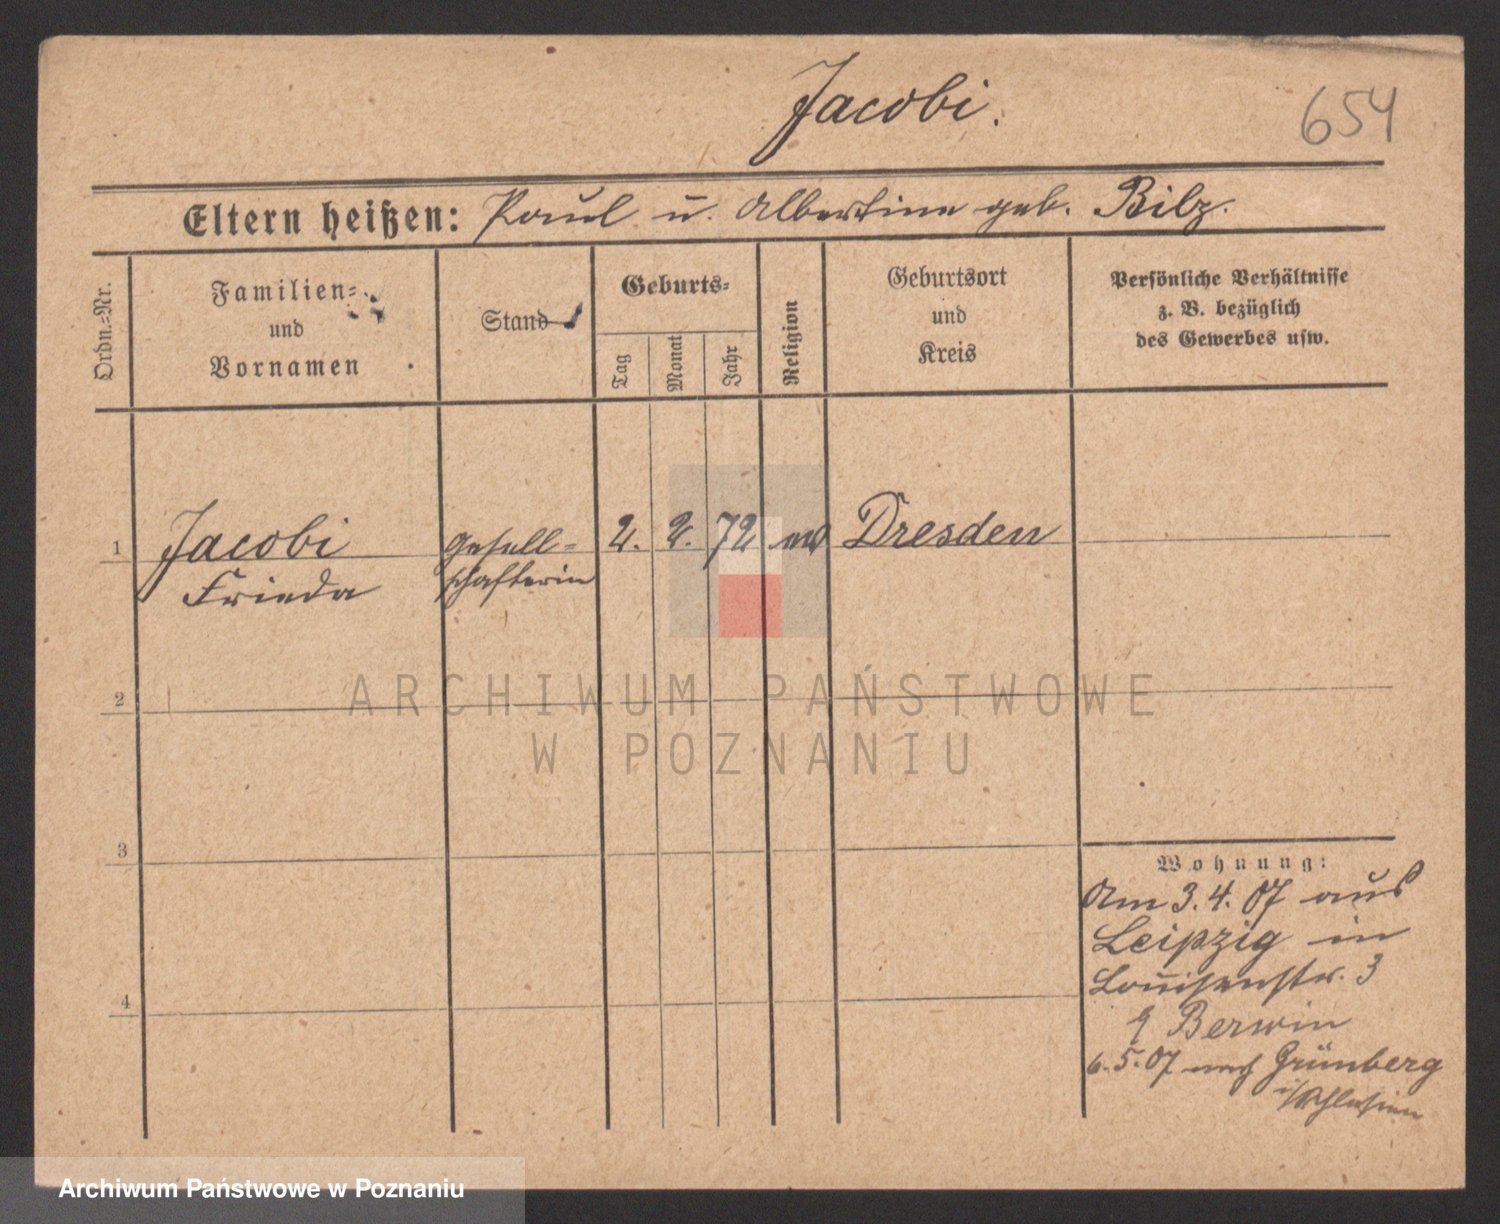 Jacobi.
654
Eltern heißen: Paul u. Albertine geb. Bilz.
Ordn.=Nr.
Familien=
und
Vornamen
Stand
Geburts=
Tag
Monat
Jahr
Religion
Geburtsort
und
Kreis
Persönliche Verhältnisse
z. B. bezüglich
des Gewerbes usw.
1
Jacobi
Frieda
Gesell=
schafterin
2. 2. 72
Dresden
2
3
4
ARCHIWUM PAŃSTWOWE
W POZNANIU
Wohnung:
Am 3.4.07 aus
Leipzig in
Louisenstr. 3
Berwin
6.5.07 nach Grünberg
i/Schlesien
Archiwum Państwowe w Poznaniu